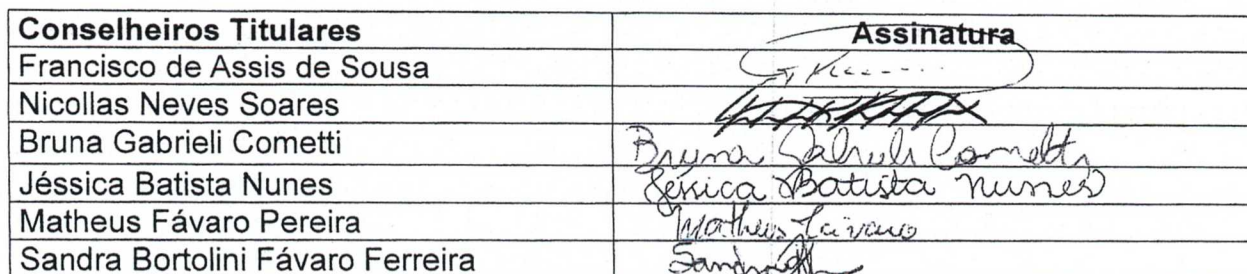 Conselheiros Titulares Assinatura
Francisco de Assis de Sousa
Nicollas Neves Soares
Bruna Gabrieli Cometti Bruna Gabrieli Cometti
Jéssica Batista Nunes Jéssica Batista Nunes
Matheus Fávaro Pereira Matheus Fávaro
Sandra Bortolini Fávaro Ferreira Sandra